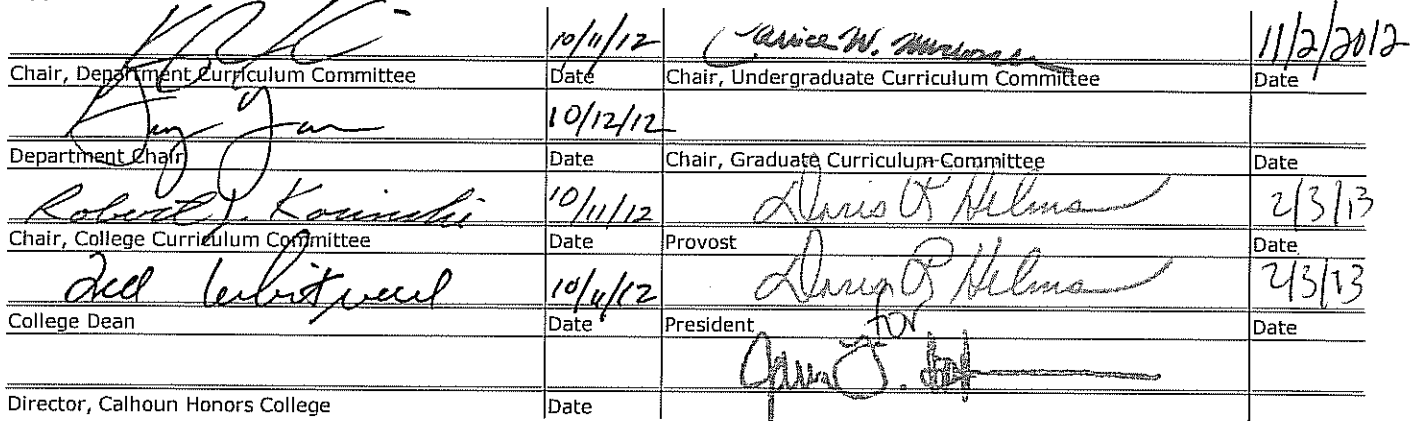 10/11/12 Janice W. 11/2/2012
Chair, Department Curriculum Committee Date Chair, Undergraduate Curriculum Committee Date
10/12/12
Department Chair Date Chair, Graduate Curriculum Committee Date
Robert J. Kosinski 10/11/12 Doris R. Helms 2/3/13
Chair, College Curriculum Committee Date Provost Date
10/11/12 Doris R. Helms 2/3/13
College Dean Date President for Date
Director, Calhoun Honors College Date